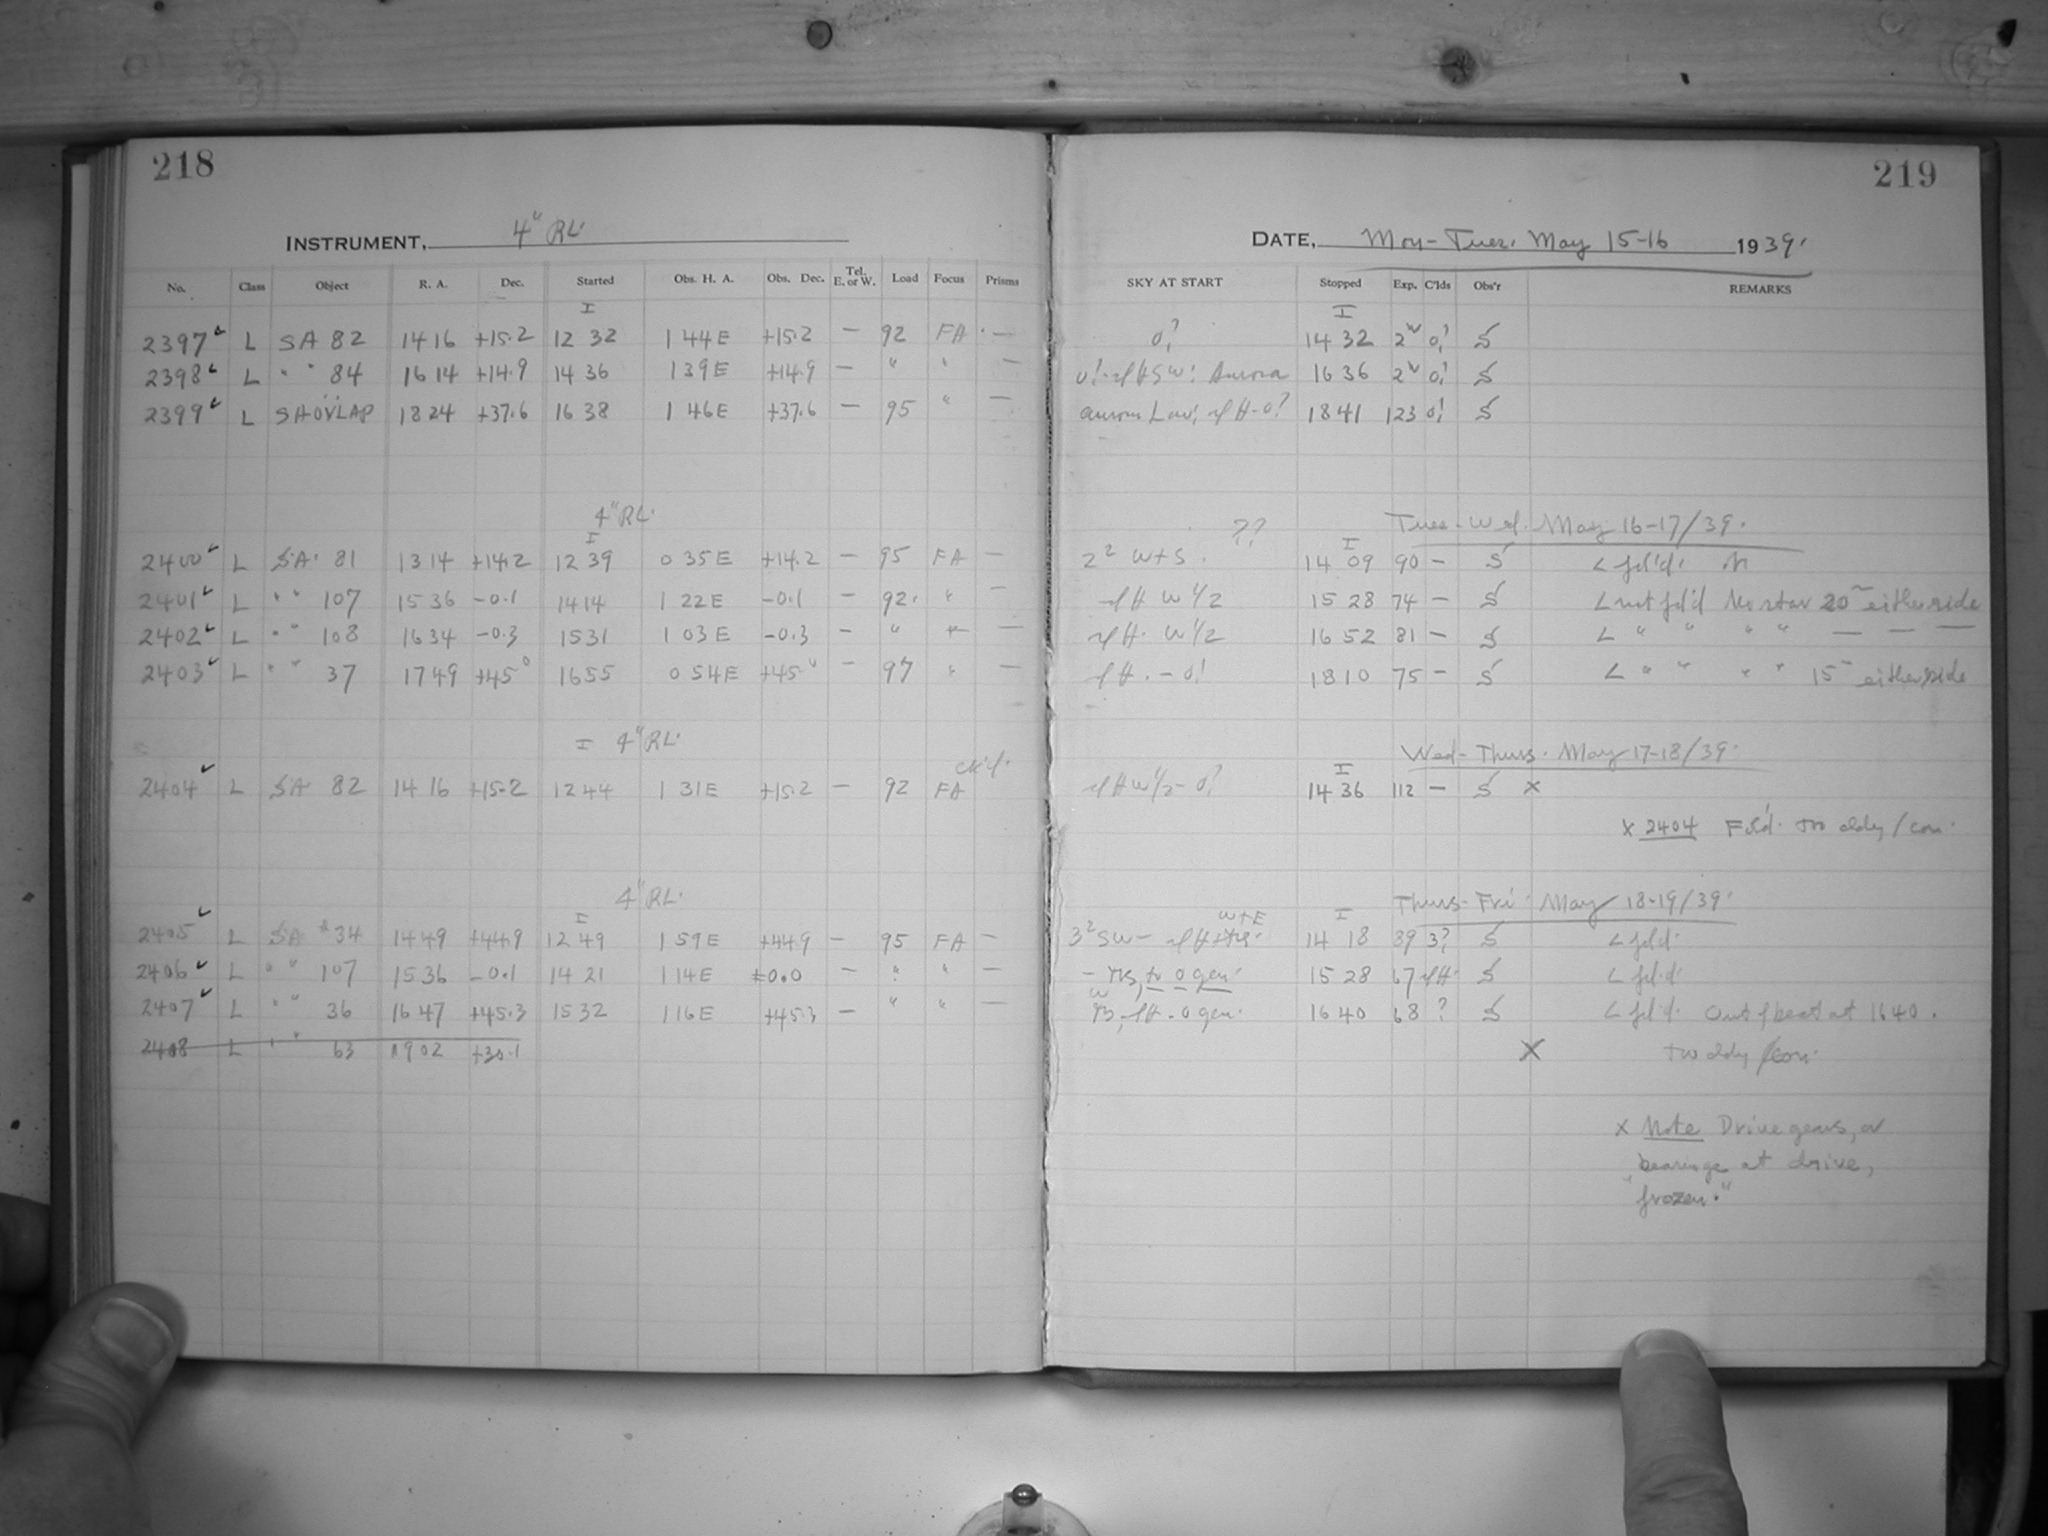 218
INSTRUMENT, 4" RL.
No. Class Object R. A. Dec. Started Obs. H. A. Obs. Dec. Tel. E. or W. Load Focus Prisms
I
2397 L SA 82 14 16 +15.2 12 32 1 44 E +15.2 — 92 FA —
2398 L " " 84 16 14 +14.9 14 36 1 39 E +14.9 — " " —
2399 L SA OVLAP 18 24 +37.6 16 38 1 46 E +37.6 — 95 " —
4" RL.
I
2400 L SA 81 13 14 +14.2 12 39 0 35 E +14.2 — 95 FA —
2401 L " " 107 15 36 -0.1 14 14 1 22 E -0.1 — 92 " —
2402 L " " 108 16 34 -0.3 15 31 1 03 E -0.3 — " " —
2403 L " " 37 17 49 +45° 16 55 0 54 E +45° — 97 " —
I 4" RL.
2404 L SA 82 14 16 +15.2 12 44 1 31 E +15.2 — 92 FA
4" RL.
I
2405 L SA 34 14 49 +44.9 12 49 1 59 E +44.9 — 95 FA —
2406 L " " 107 15 36 -0.1 14 21 1 14 E ±0.0 — " " —
2407 L " " 36 16 47 +45.3 15 32 1 16 E +45.3 — " " —
2408 L " " 63 1902 +30.1
219
DATE, Mon-Tues. May 15-16 1939.
SKY AT START Stopped Exp. C'lds Obs'r REMARKS
I
0? 14 32 2 0! S
Aurora 16 36 2 0! S
aurora Low! 18 41 123 0! S
?? Tues-Wed. May 16-17/39.
I
2² W+S. 14 09 90 — S L fd'd.
W ½ 15 28 74 — S L not fd'd No star 20 either side
W ½ 16 52 81 — S L " " " " — — —
— 0! 18 10 75 — S L " " " " 15 either side
Wed-Thurs. May 17-18/39.
I
W ½ - 0? 14 36 112 — S x
x 2404 F'd'd.
Thurs-Fri May 18-19/39.
W+E I
3² SW — 14 18 89 3? S L fd'd.
0 gen. 15 28 67 S L fd'd.
0 gen. 16 40 68 ? S L fd'd. Out of beat at 1640.
X
x Note Drive gears, or
bearings at drive,
"frozen."